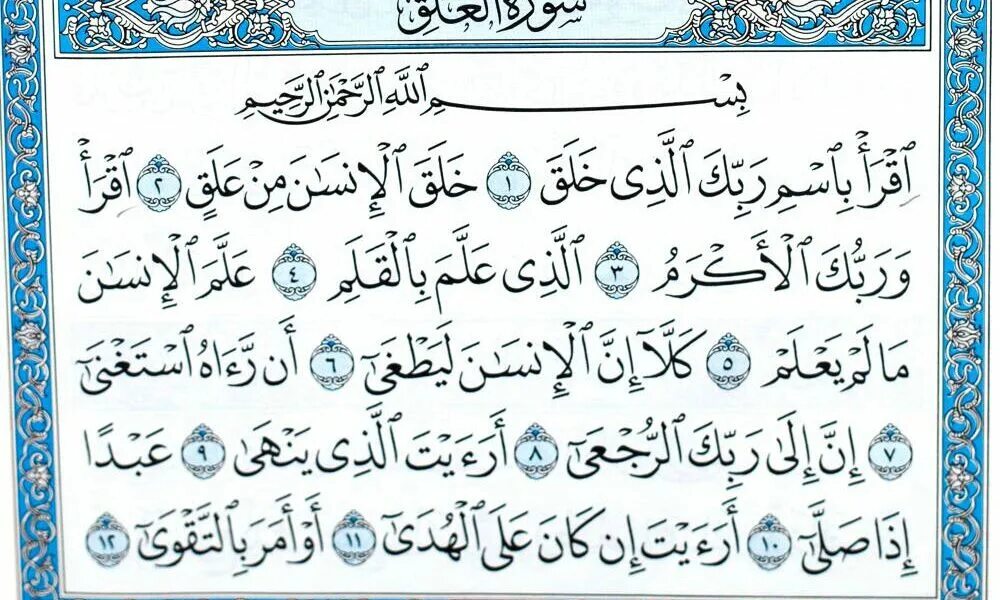 سُورَةُ العَلَقِ
بِسۡمِ ٱللَّهِ ٱلرَّحۡمَٰنِ ٱلرَّحِيمِ
ٱقۡرَأۡ بِٱسۡمِ رَبِّكَ ٱلَّذِى خَلَقَ ١ خَلَقَ ٱلۡإِنسَٰنَ مِنۡ عَلَقٍ ٢ ٱقۡرَأۡ
وَرَبُّكَ ٱلۡأَكۡرَمُ ٣ ٱلَّذِى عَلَّمَ بِٱلۡقَلَمِ ٤ عَلَّمَ ٱلۡإِنسَٰنَ
مَا لَمۡ يَعۡلَمۡ ٥ كَلَّآ إِنَّ ٱلۡإِنسَٰنَ لَيَطۡغَىٰٓ ٦ أَن رَّءَاهُ ٱسۡتَغۡنَىٰٓ
٧ إِنَّ إِلَىٰ رَبِّكَ ٱلرُّجۡعَىٰٓ ٨ أَرَءَيۡتَ ٱلَّذِى يَنۡهَىٰ ٩ عَبۡدًا
إِذَا صَلَّىٰٓ ١٠ أَرَءَيۡتَ إِن كَانَ عَلَى ٱلۡهُدَىٰٓ ١١ أَوۡ أَمَرَ بِٱلتَّقۡوَىٰٓ ١٢